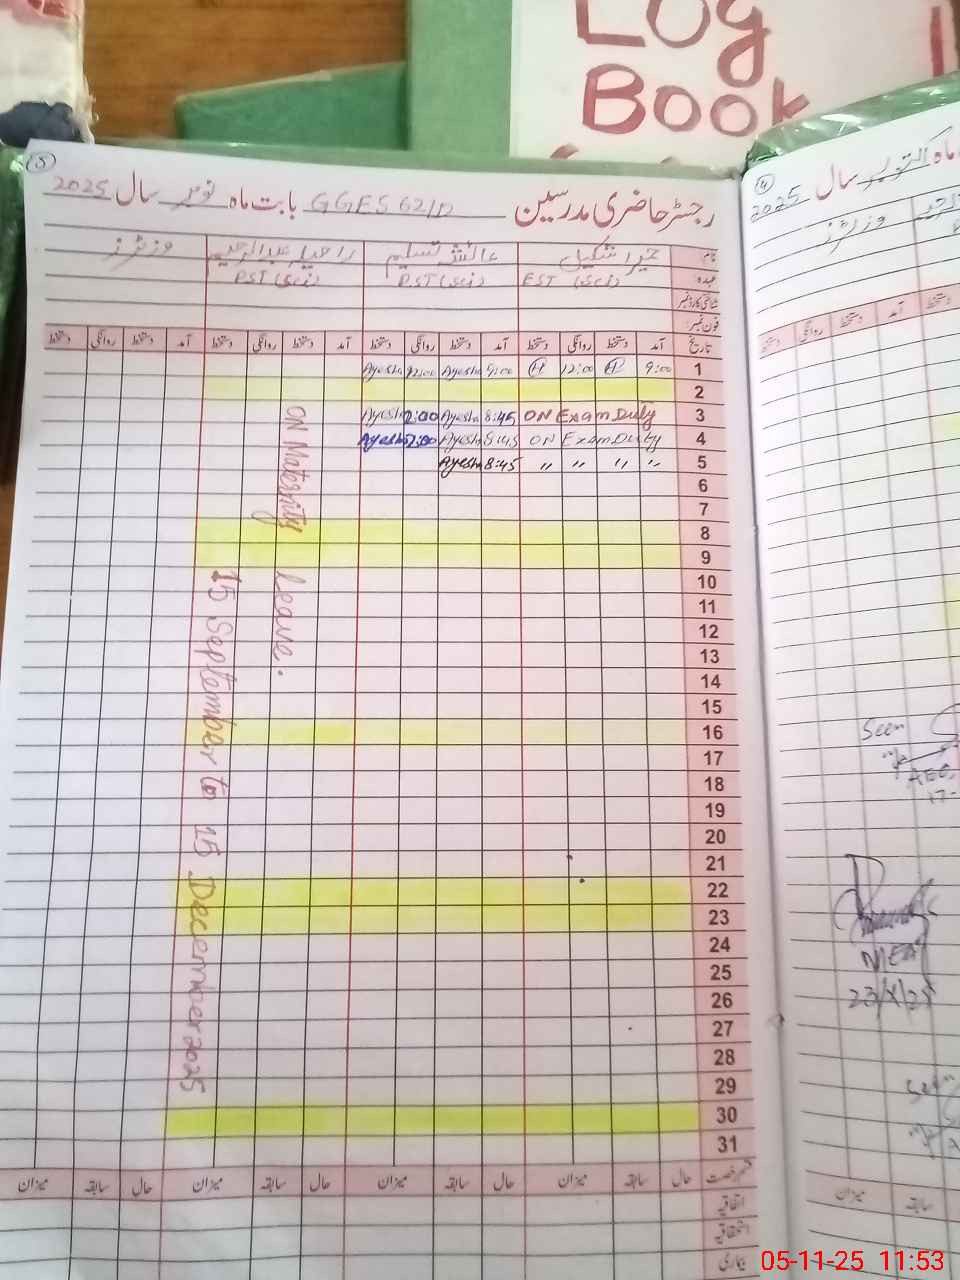 Log
Book
5
رجسٹر حاضری مدرسین GGES 62/D بابت ماہ نومبر سال 2025
نام حمیرا شکیل عائشہ تسلیم وزٹرز
عہدہ EST PST PST
شناختی کارڈ نمبر
فون نمبر:
تاریخ آمد دستخط روانگی دستخط آمد دستخط روانگی دستخط آمد دستخط روانگی دستخط آمد دستخط روانگی دستخط
1 9:00 12:00 9:00 Ayesha 12:00 Ayesha
2
3 ON Exam Duty 8:45 Ayesha 2:00 Ayesha
4 ON Exam Duty 8:45 Ayesha 2:00 Ayesha
5 " " " " 8:45 Ayesha
6
7
8
9
10
11
12
13
14
15
16
17
18
19
20
21
22
23
24
25
26
27
28
29
30
31
ON Maternity Leave.
15 September to 15 December 2025
قسم رخصت حال سابقہ میزان حال سابقہ میزان حال سابقہ میزان حال سابقہ میزان
اتفاقیہ
استحقاقیہ
بیماری
4
ماہ اکتوبر سال 2025
وزٹرز
دستخط آمد دستخط روانگی دستخط
Seen
AEO
17-
MEA
23/X/25
Seen
سابقہ میزان
05-11-25 11:53